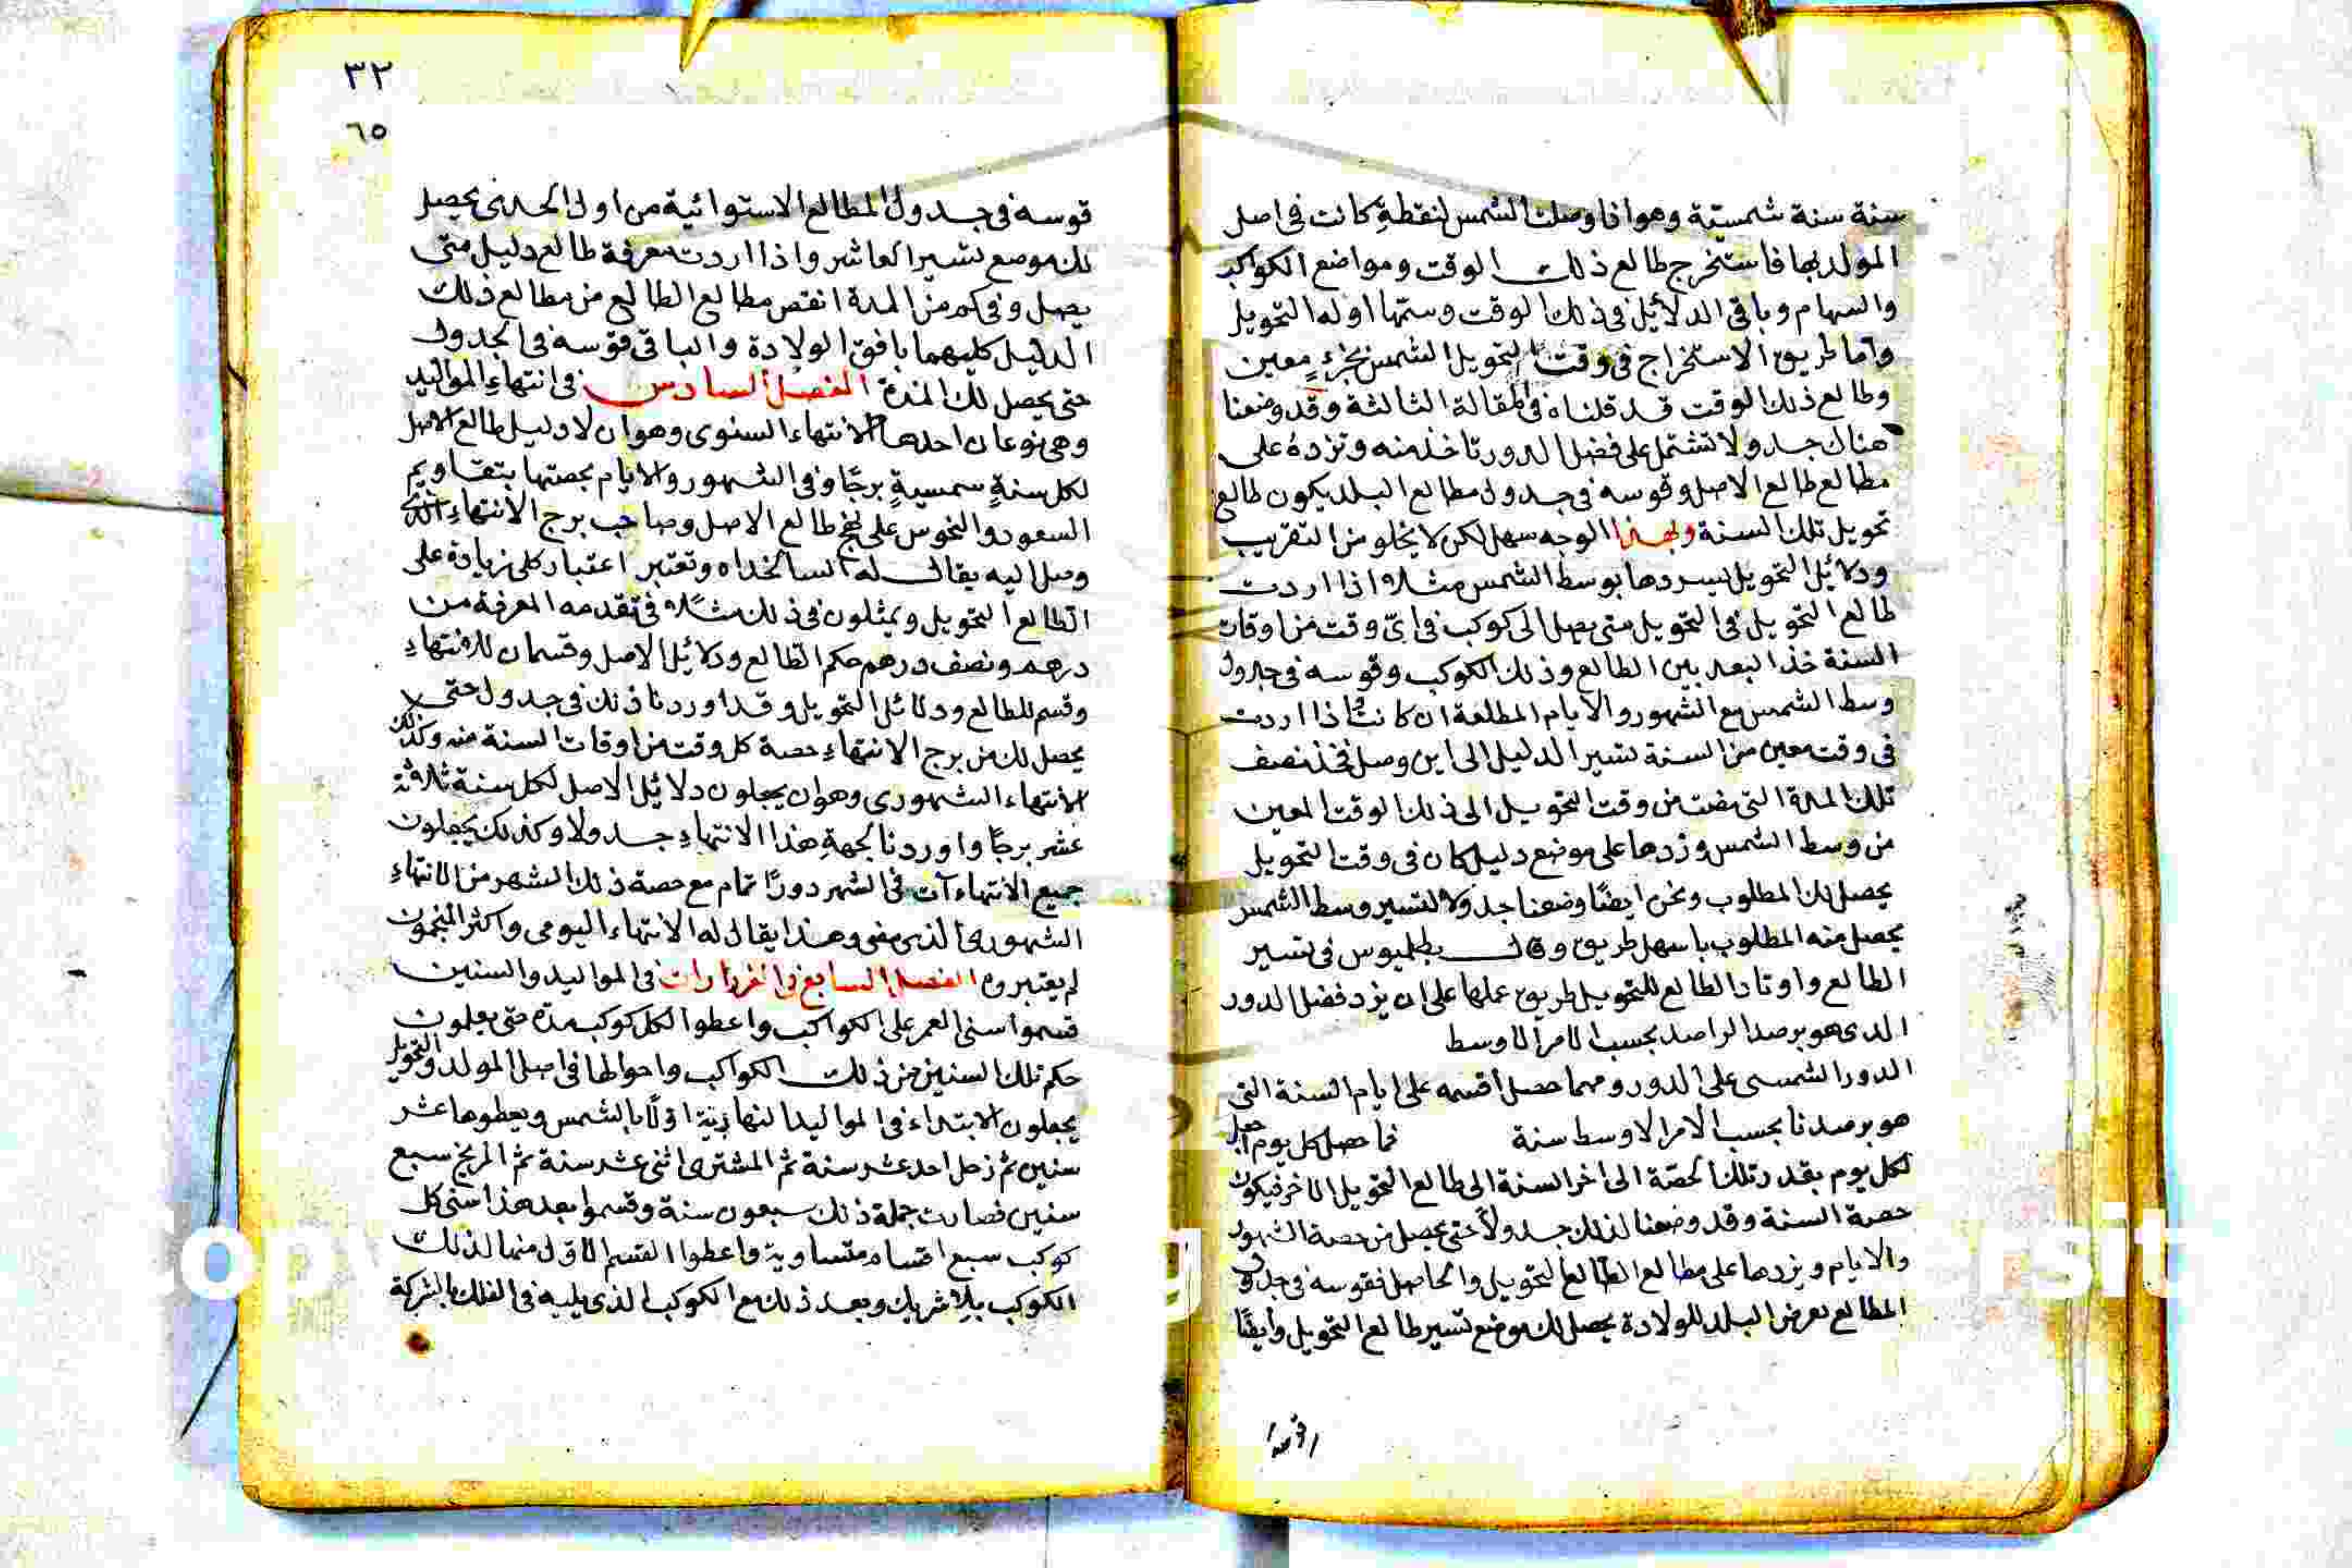 سنة سنة شمسية وهو اذا وصلت الشمس لنقطة كانت في اصل
المولد بها فاستخرج طالع ذلك الوقت ومواضع الكواكب
والسهام وباقي الدلائل في ذلك الوقت وسمها اوله التحويل
واما طريق الاستخراج في وقت التحويل الشمس بجزء معين
وطالع ذلك الوقت قد قلناه في المقالة الثالثة وقد وضعنا
هناك جدولا تشتمل على فضل الدور تاخذ منه وتزده على
مطالع طالع الاصل وقوسه في جدول مطالع البلد يكون طالع
تحويل تلك السنة وبهذا الوجه سهل لكن لا يخلو من التقريب
ودلائل التحويل يسيرها بوسط الشمس مثلا اذا اردت
طالع التحويل في التحويل متى يصل الى كوكب في اي وقت من اوقات
السنة خذ البعد بين الطالع وذلك الكوكب وقوسه في جدول
وسط الشمس مع الشهور والايام المطلعة ان كانت اذا اردت
في وقت معين من السنة تسير الدليل الى اين وصل فخذ نصف
تلك المدة التي مضت من وقت التحويل الى ذلك الوقت المعين
من وسط الشمس وزدها على موضع دليل كان في وقت التحويل
يحصل لك المطلوب ونحن ايضا وضعنا جدولا لتسير وسط الشمس
يحصل منه المطلوب باسهل طريق وقال بطلميوس في تسير
الطالع واوتاد الطالع للتحويل طريق عملها على ان يزد فضل الدور
الذي هو برصد الراصد بحسب الامر الاوسط
الدور الشمسي على الدور ومهما حصل اقسمه على ايام السنة التي
هو برصدنا بحسب الامر الاوسط سنة فما حصل كل يوم اجعل
لكل يوم بقدر تلك الحصة الى اخر السنة الى طالع التحويل الاخر فيكون
حصة السنة وقد وضعنا لذلك جدولا حتى يحصل من حصة الشهور
والايام ويزدها على مطالع الطالع التحويل والحاصل فقوسه في جدول
المطالع بعرض البلد للولادة يحصل لك موضع تسير طالع التحويل وايضا
٣٢
٦٥
قوسه في جدول المطالع الاستوائية من اول الجدي يحصل
لك موضع تسير العاشر واذا اردت معرفة طالع دليل متى
يصل وفي كم من المدة انقص مطالع الطالع من مطالع ذلك
الدليل كليهما بافق الولادة والباقي قوسه في الجدول
حتى يحصل لك المدة الفصل السادس في انتهاء المواليد
وهي نوعان احدها الانتهاء السنوي وهو ان لا دليل طالع الاصل
لكل سنة شمسية برجا وفي الشهور والايام بحصتها بتقاويم
السعود والنحوس على نهج طالع الاصل وصاحب برج الانتهاء الذي
وصل اليه يقال له السالخداه وتعتبر اعتبار كلي زيادة على
الطالع التحويل ويمثلون في ذلك مثلا في تقدمه المعرفة من
درهم ونصف درهم حكم الطالع ودلائل الاصل وقسمان للانتهاء
وقسم للطالع ودلائل التحويل وقد اوردنا ذلك في جدول حتى لا
يحصل لك من برج الانتهاء حصة كل وقت من اوقات السنة منه وكذلك
الانتهاء الشهوري وهو ان يجعلون دلائل الاصل لكل سنة ثلاثة
عشر برجا واوردنا لجهة هذا الانتهاء جدولا وكذلك يجعلون
جميع الانتهاءات في الشهر دورا تمام مع حصة ذلك الشهر من الانتهاء
الشهوري الذي مضى وهذا يقال له الانتهاء اليومي واكثر المنجمون
لم يعتبروه الفصل السابع في الفردارات في المواليد والسنين
قسموا سني العمر على الكواكب واعطوا لكل كوكب مدة حتى يعلمون
حكم تلك السنين من ذلك الكواكب واحوالها في اصل المولد والتحويل
يجعلون الابتداء في المواليد النهارية اولا بالشمس ويعطوها عشر
سنين ثم زحل احد عشر سنة ثم المشتري اثني عشر سنة ثم المريخ سبع
سنين فصارت جملة ذلك سبعون سنة وقسموا بعد هذا سني كل
كوكب سبع اقسام متساوية واعطوا القسم الاول منها لذلك
الكوكب بلا شريك وبعد ذلك مع الكوكب الذي يليه في الفلك بالشركة